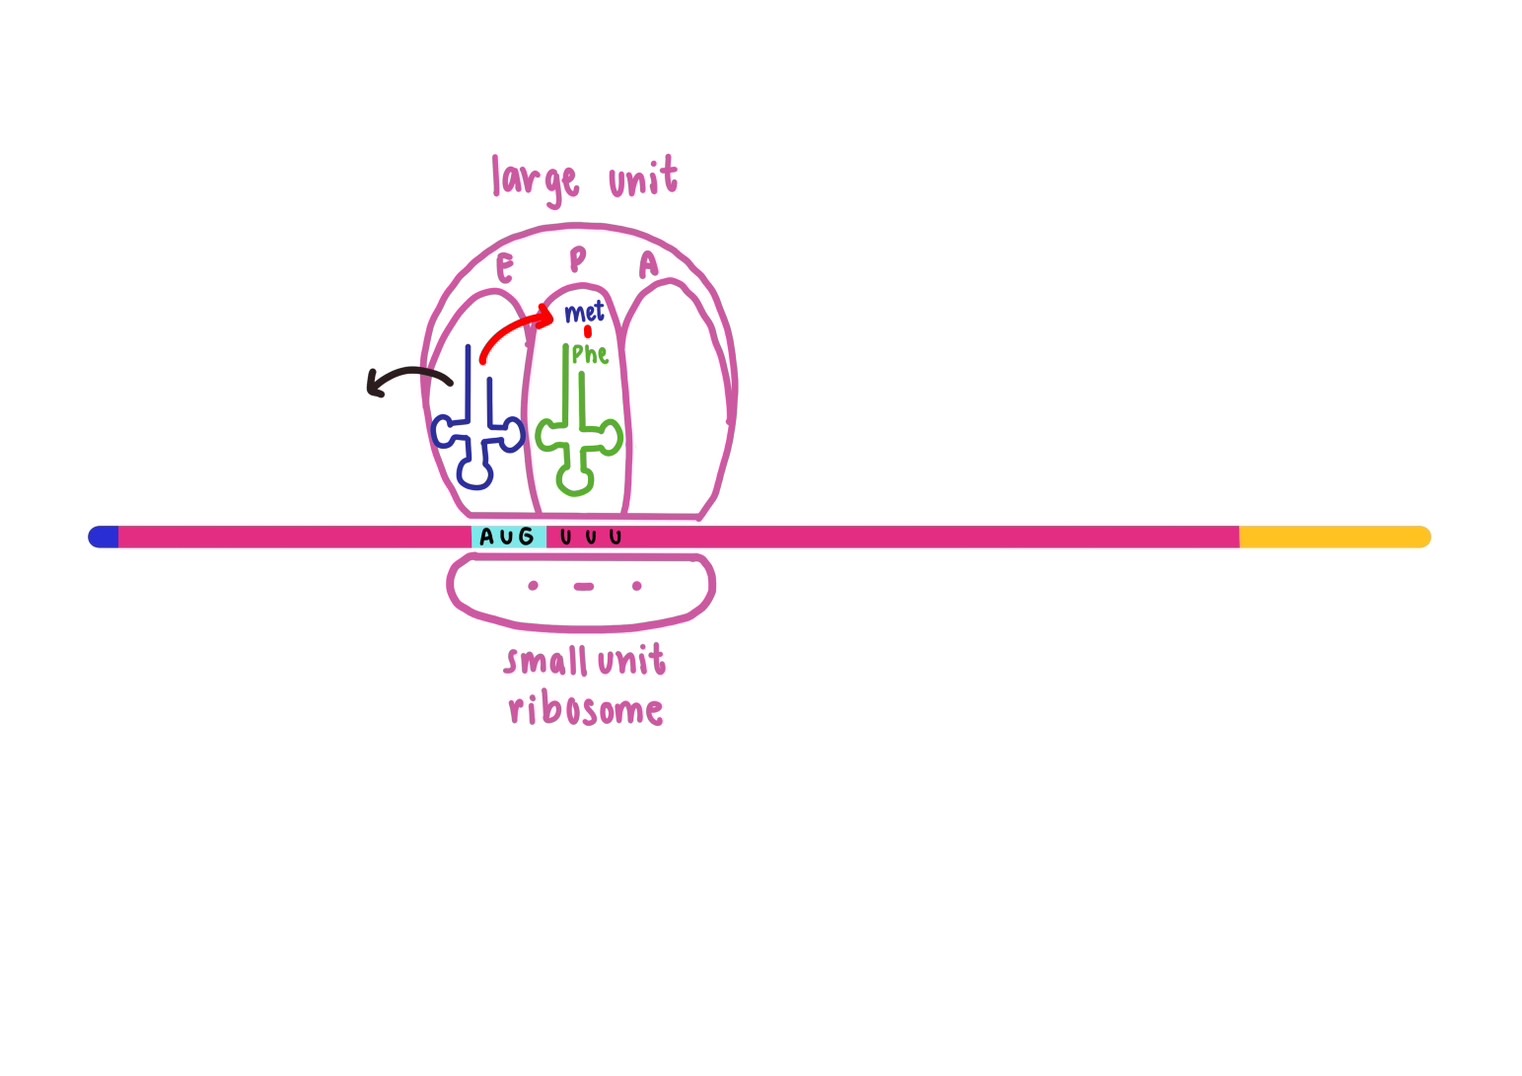 large unit
E P A
met
Phe
AUG UUU
small unit
ribosome